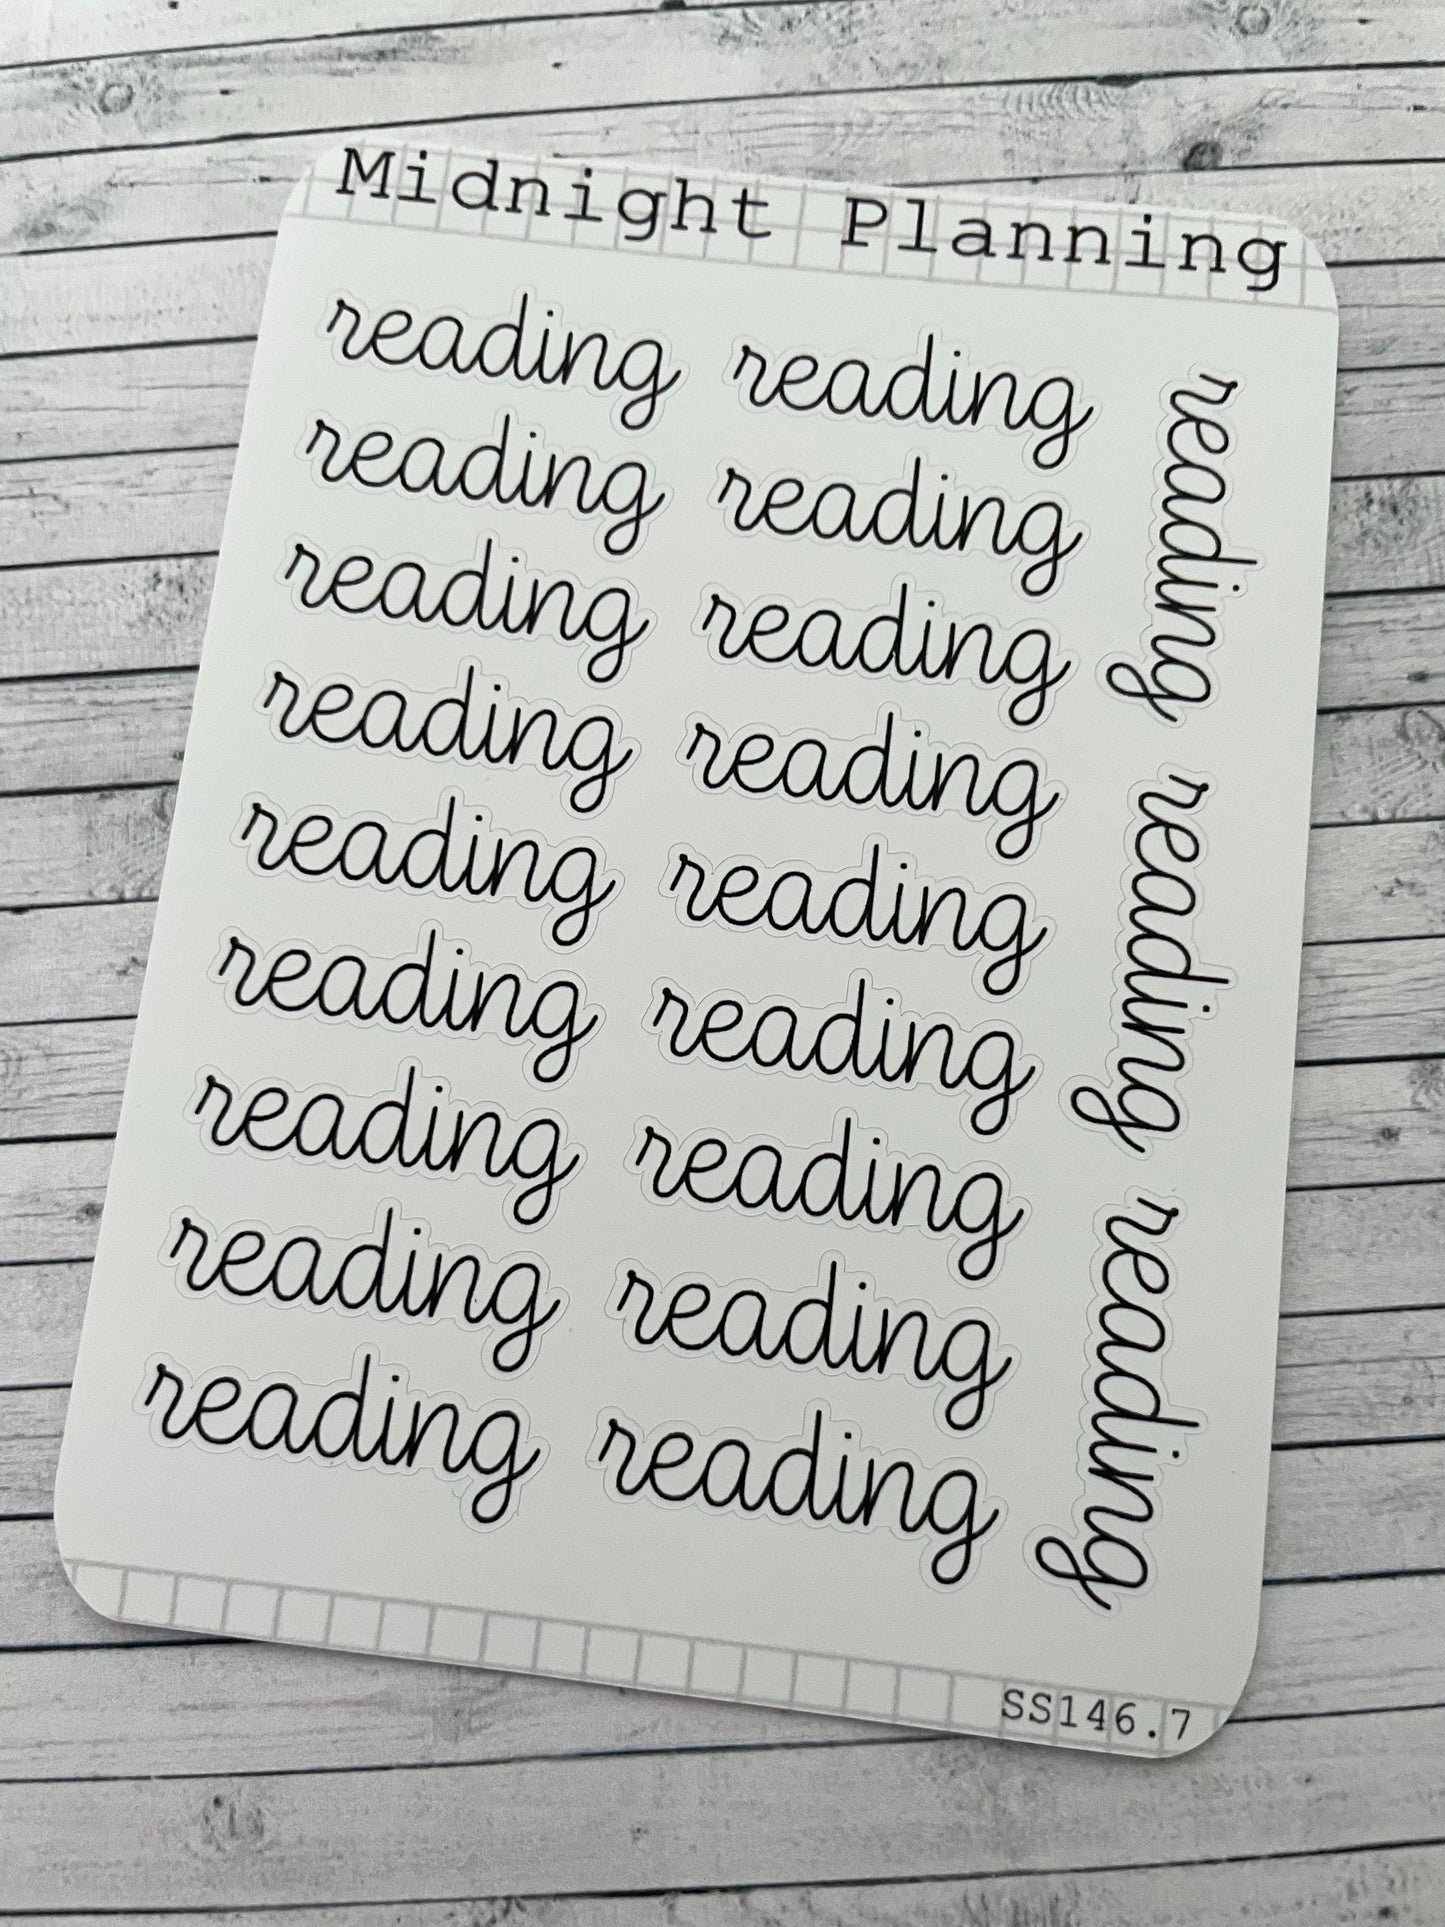 Midnight Planning
reading reading
reading reading
reading reading
reading reading
reading reading
reading reading
reading reading
reading reading
reading reading
reading
reading
reading
SS146.7